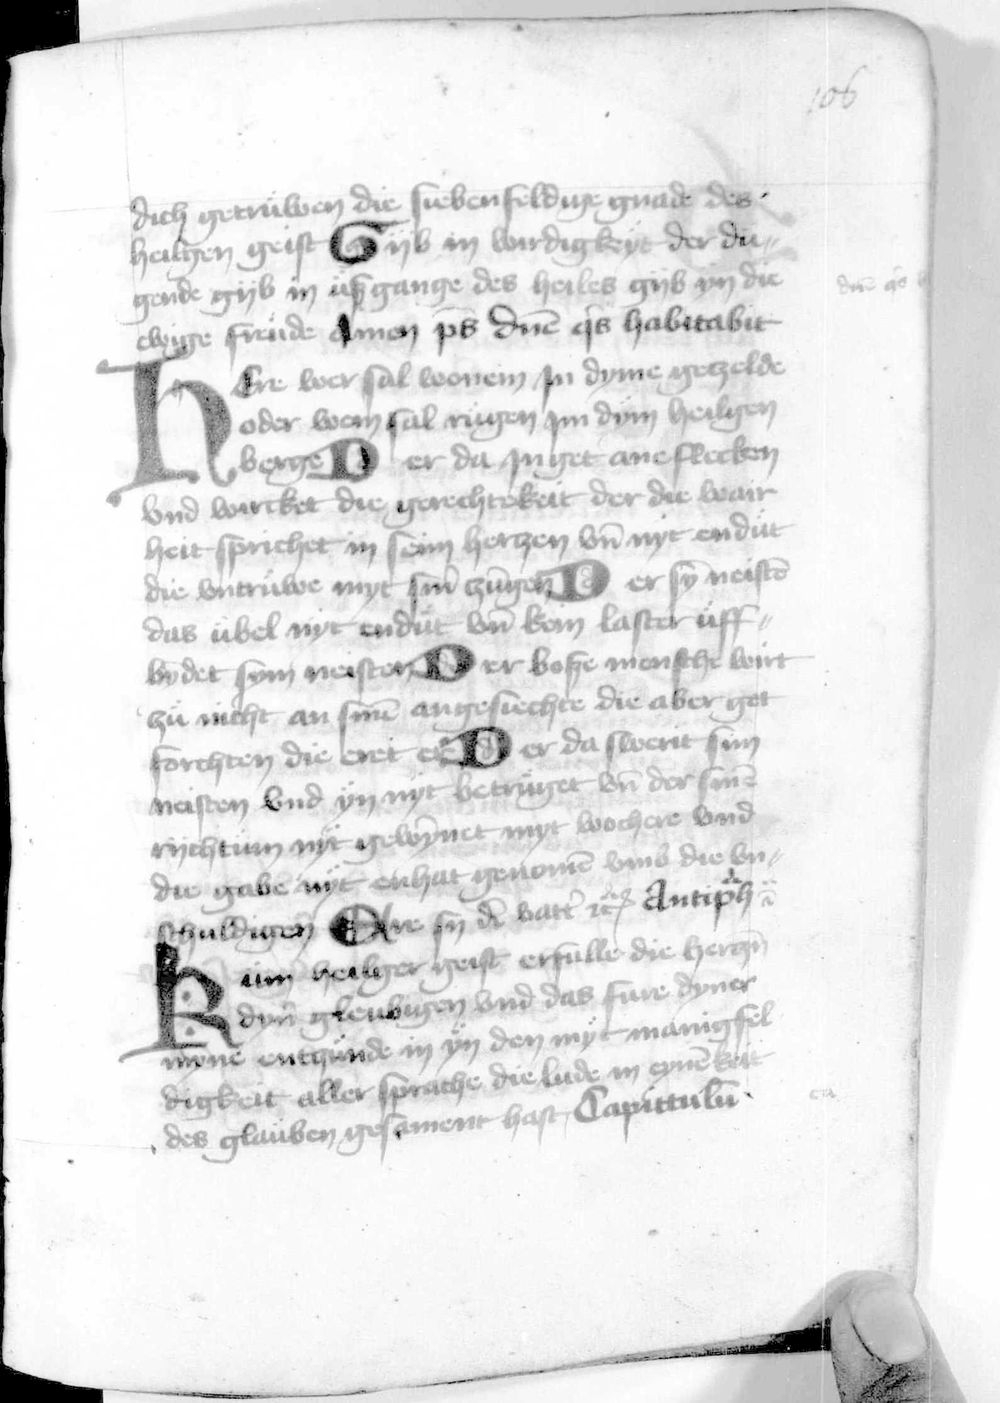 106
dich getruwen die siebenfeldige gnade des
heilgen geist Gyb in wirdigkeyt der du„
gende gyb in ußgange des heiles gyb yn die
ewige freude Amen ps Dnē qͥs habitabit
HEre wer sal wonen In dyme getzelde
oder wem sal rugen Im dym heilgen
berge D er da Inget ane flecken
vnd wircket die gerechtekeit der die wair
heit sprichet in seim hertzen vn̄ nyt endut
die vntruwe myt sinr zungen D er sȳ neistē
das ubel nyt endut vn̄ kein laster uff„
sym neisten D er boße mensche wirt
zu nicht an sinē angesiechte die aber got
forchten die eret er D er da swerit sim
neisten vnd yn nyt betruget vn̄ der sinē
rychtum nyt gewȳnet myt wochere vnd
die gabe nyt enhat genomē vmb die vn„
schuldigen Ere sy dē vatt' Antiph
Kum heilger geist erfulle die hertzn̄
dyn̄ gleubigen vnd das fure dyner
myne entzunde in yn den myt manigfel
digkeit aller sprache die lude in eynē keit
des glauben gesament hast Capittulū
ca